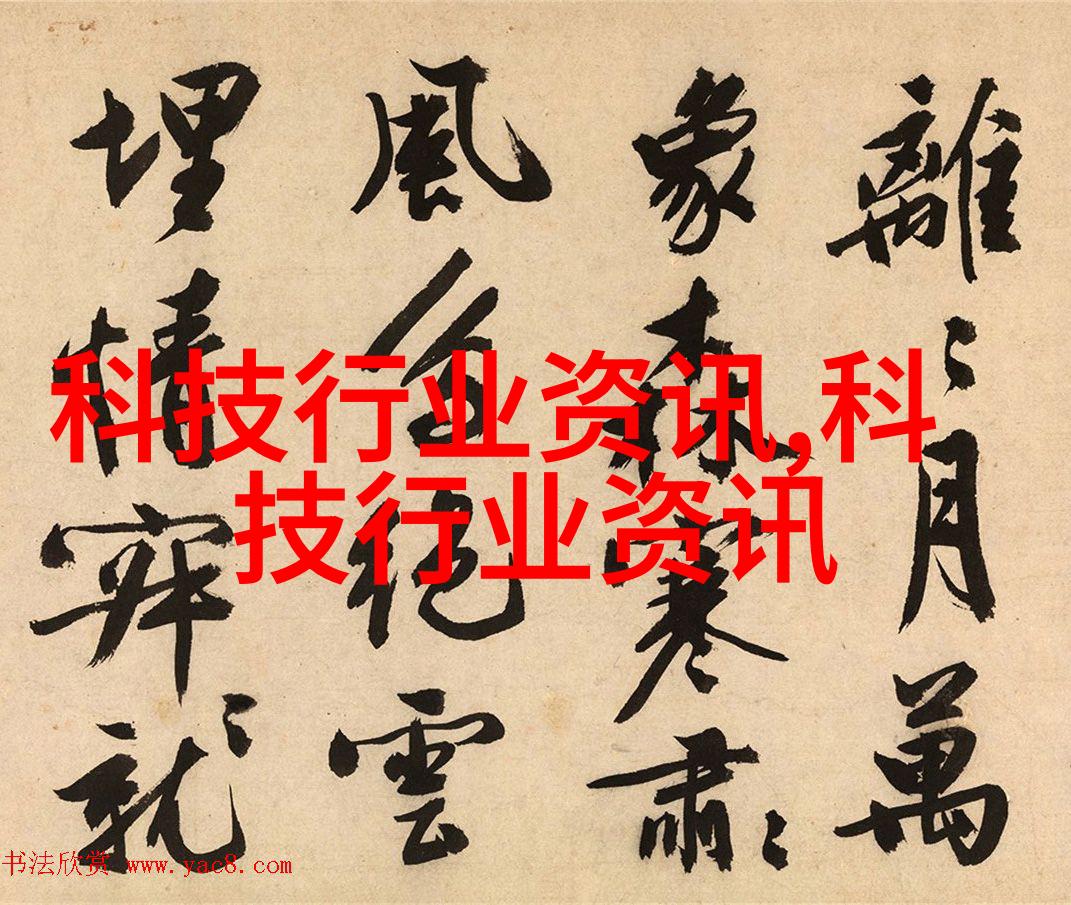 離〻月萬
象森寒肅〻
風絕雲
埋情穽就〻
科技行业资讯,科
技行业资讯
书法欣赏 www.yac8.com